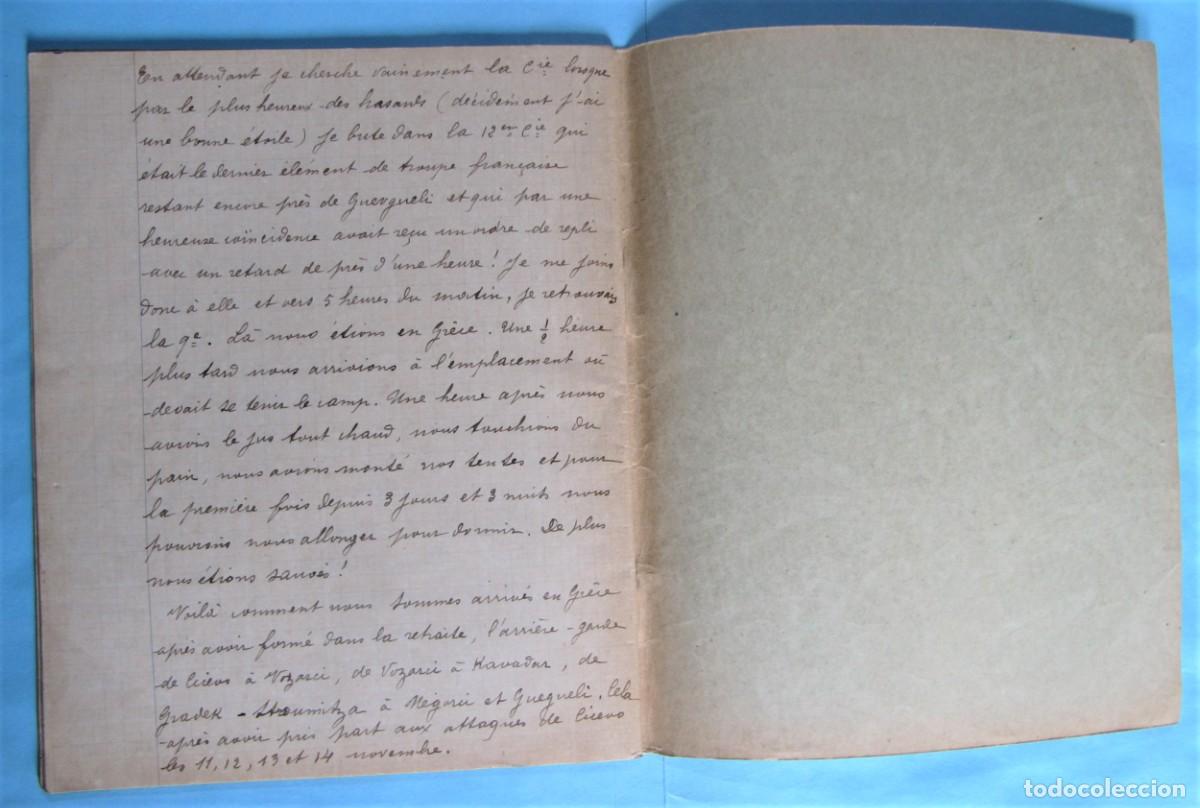 En attendant je cherche vainement la Cie lorsque
par le plus heureux des hasards (décidément j'ai
une bonne étoile) je bute dans la 12em Cie qui
était le dernier élément de troupe française
restant encore près de Guevgueli et qui par une
heureuse coïncidence avait reçu un ordre de repli
avec un retard de près d'une heure! Je me joins
donc à elle et vers 5 heures du matin, je retrouvais
la 9e. Là nous étions en Grèce. Une 1/2 heure
plus tard nous arrivions à l'emplacement où
devait se tenir le camp. Une heure après nous
avions le jus tout chaud, nous touchions du
pain, nous avions monté nos tentes et pour
la première fois depuis 3 jours et 3 nuits nous
pouvions nous allonger pour dormir. De plus
nous étions sauvés!
Voilà comment nous sommes arrivés en Grèce
après avoir formé dans la retraite, l'arrière-garde
de Cicevo à Vozarci, de Vozarci à Kavadar, de
Gradek - Stroumitza à Négorci et Guegueli. Cela
après avoir pris part aux attaques de Cicevo
les 11, 12, 13 et 14 novembre.
todocoleccion